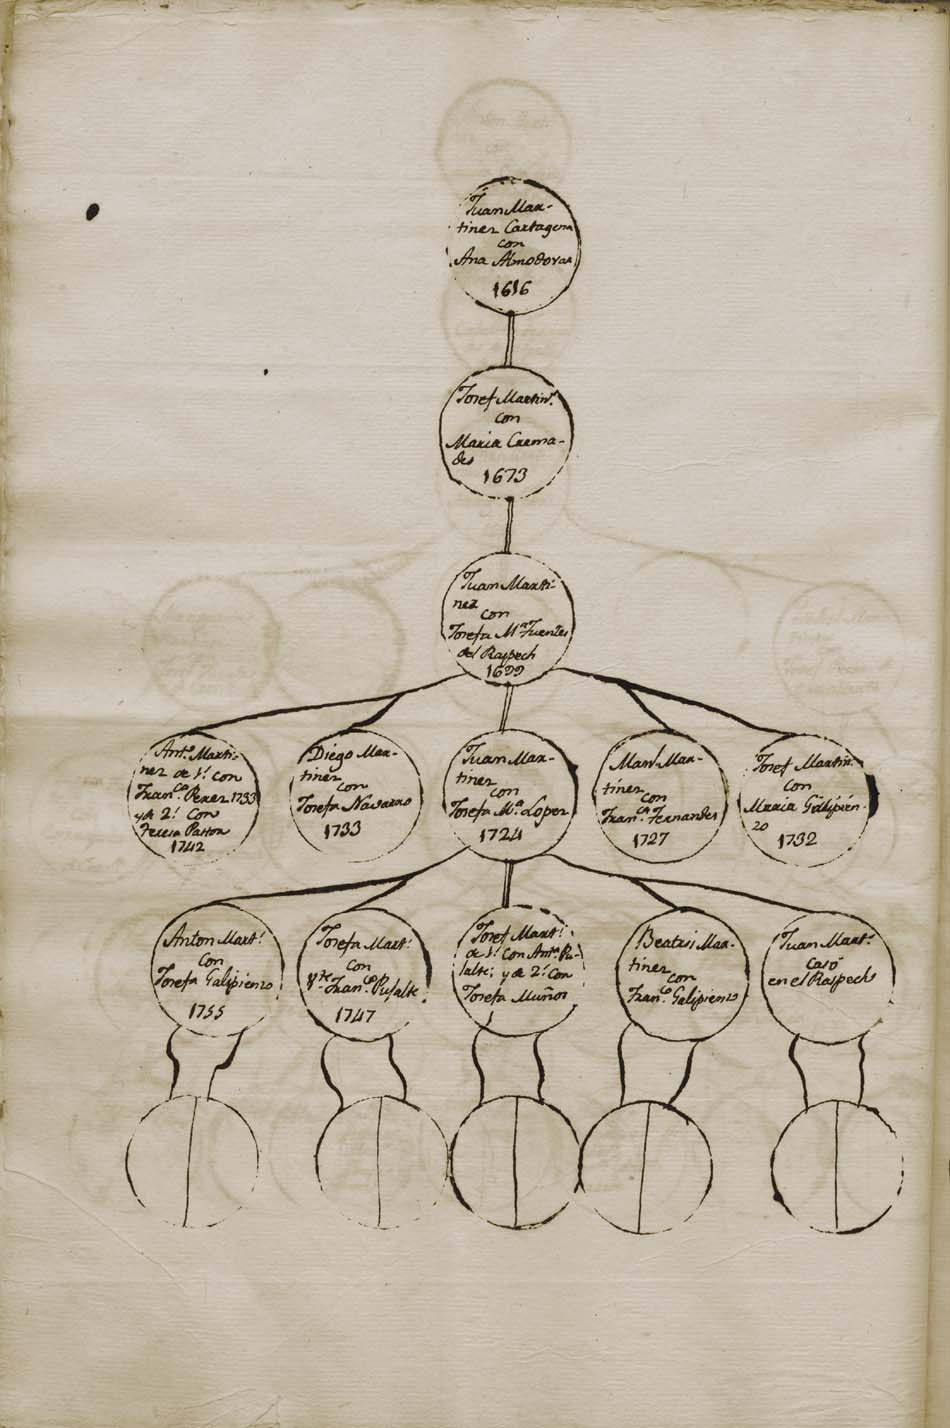 Juan Mar-
tinez Cartagena
con
Ana Almodovar
1616
Josef Martinz.
con
Maria Crema-
des
1673
Juan Marti-
nez
con
Josefa Ma. Fuentes
del Raspech
1699
Anto. Marti-
nez de 1a. con
Franca. Perez 1733
y de 2a. con
Teresa Pastor
1742
Diego Mar-
tinez
con
Josefa Navarro
1733
Juan Mar-
tinez
con
Josefa Ma. Lopez
1724
Manl. Mar-
tinez
con
Franca. Fernandes
1727
Josef Martinz.
con
Maria Galipien-
zo
1732
Anton Mart.
con
Josefa Galipienzo
1755
Josefa Mart.
con
Vte. Franco. Pujalte
1747
Josef Mart.
de 1a. con Anta. Pu-
jalte; y de 2a. con
Josefa Muñoz
Beatris Mar-
tinez
con
Franco. Galipienzo
Juan Mart.
casó
en el Raspech